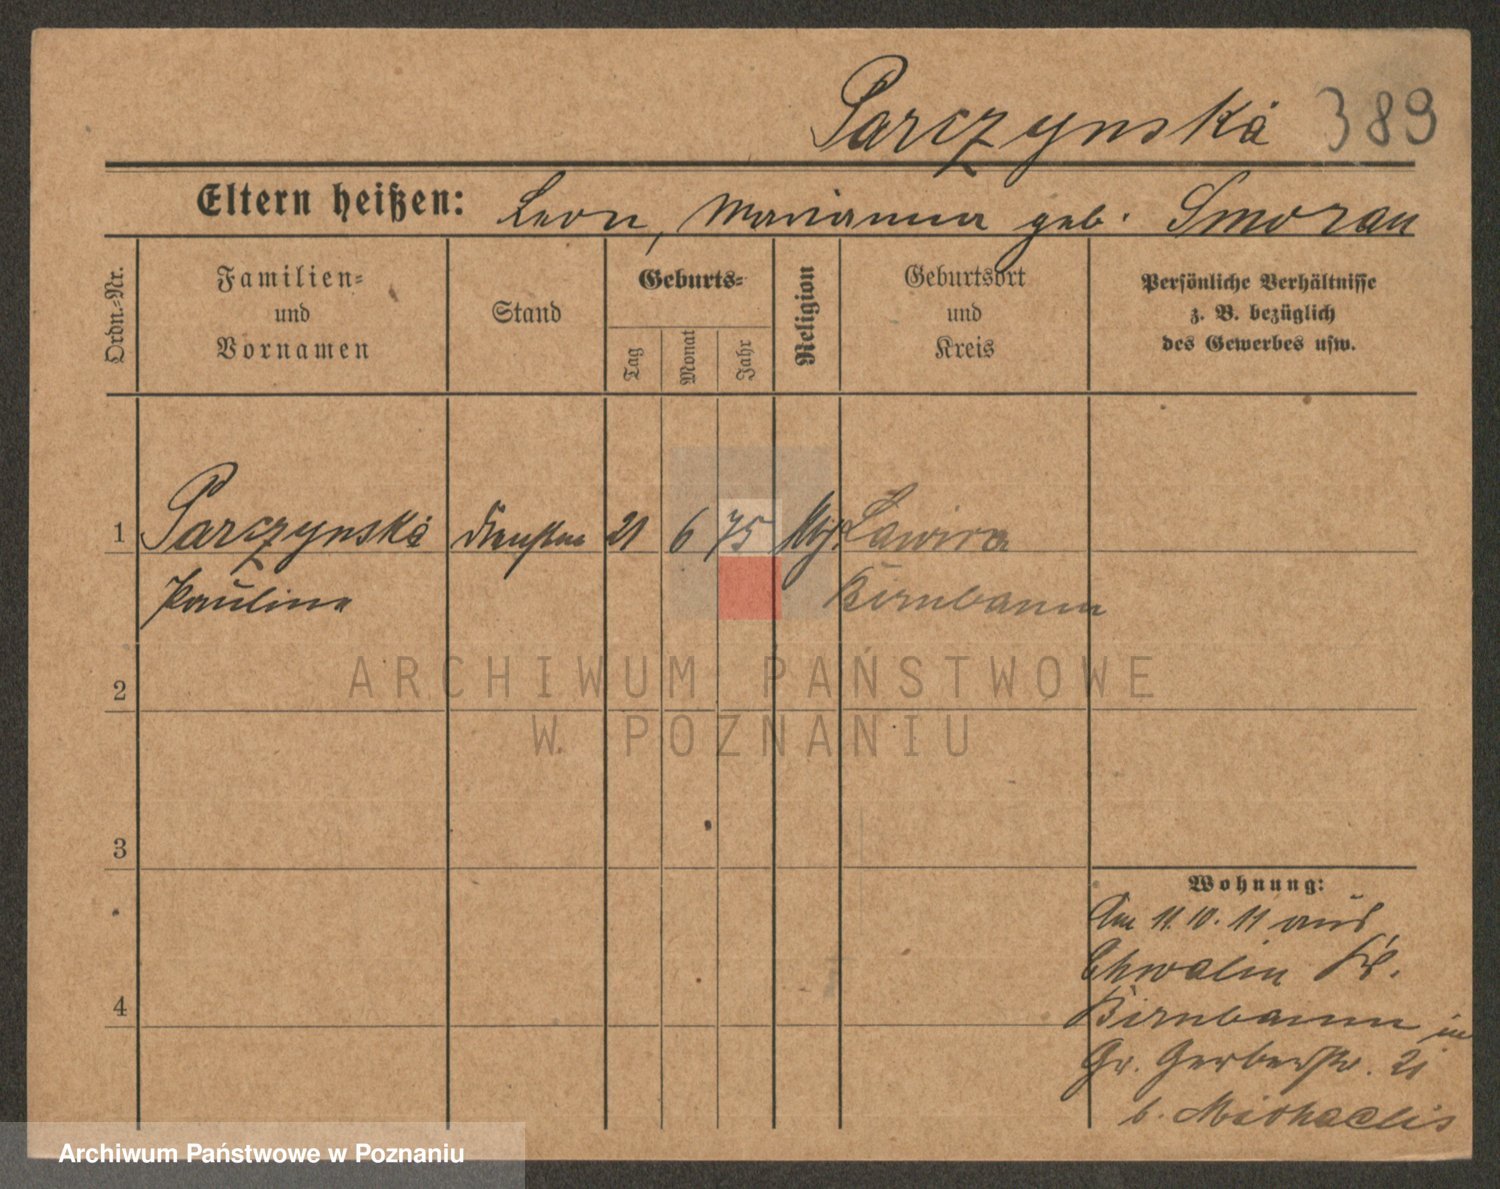 Parczynska 389
Eltern heißen: Leon, Marianna geb. Smoran
Ordn.-Nr.
Familien=
und
Vornamen
Stand
Geburts=
Tag
Monat
Jahr
Religion
Geburtsort
und
Kreis
Persönliche Verhältnisse
z. B. bezüglich
des Gewerbes usw.
1 Parczynska 21 6 75 Lawica
Paulina Birnbaum
2
3
4
Wohnung:
Am 11.10.11 aus
Chwalin Kr.
Birnbaum in
Gr. Gerberstr. 21
b. Michaelis
ARCHIWUM PAŃSTWOWE
W POZNANIU
Archiwum Państwowe w Poznaniu